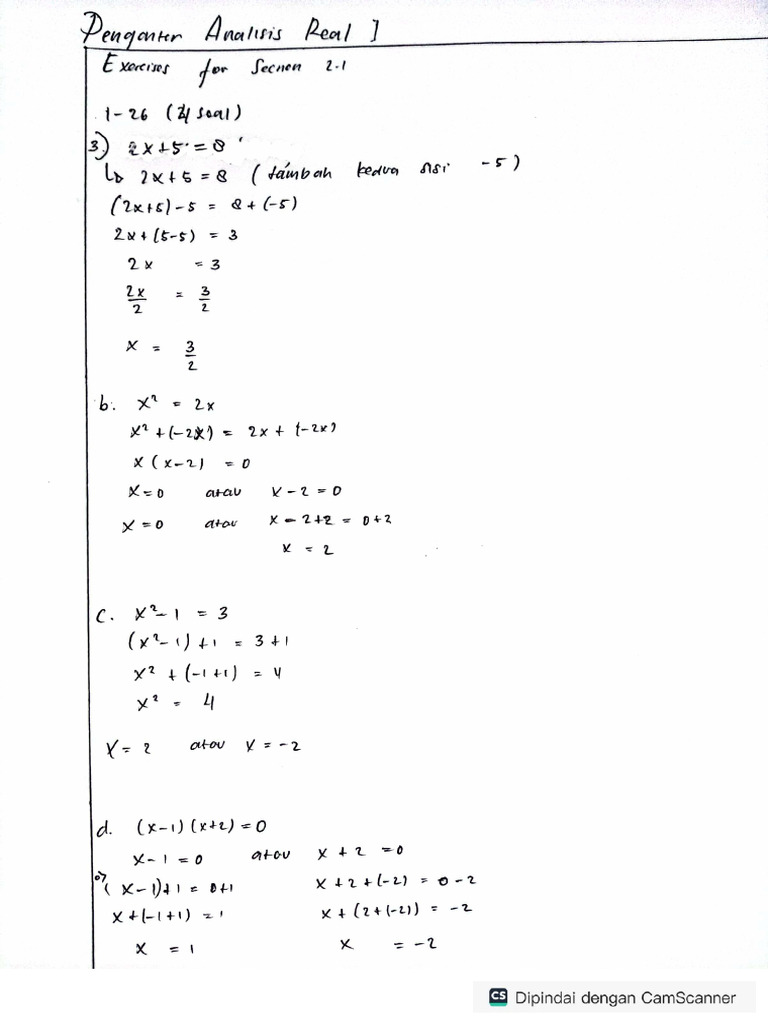 Penganter Analisis Real I
Exercises for Section 2.1
1-26 (24 soal)
3.) 2x+5 = 8
↳ 2x+5 = 8 (tambah kedua sisi -5)
(2x+5)-5 = 8+(-5)
2x+(5-5) = 3
2x = 3
2x/2 = 3/2
x = 3/2
b. x² = 2x
x²+(-2x) = 2x + (-2x)
x(x-2) = 0
x=0 atau x-2=0
x=0 atau x-2+2 = 0+2
x = 2
c. x²-1 = 3
(x²-1)+1 = 3+1
x² + (-1+1) = 4
x² = 4
x = 2 atau x = -2
d. (x-1)(x+2)=0
x-1=0 atau x+2=0
(x-1)+1 = 0+1 x+2+(-2) = 0-2
x+(-1+1) = 1 x+(2+(-2)) = -2
x = 1 x = -2
CS Dipindai dengan CamScanner